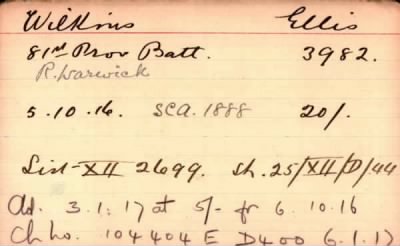 Wilkins Ellis
81st Prov Batt. 3982.
R. Warwick
5.10.16. SCA. 1888 20/.
List XII 2699. Sh. 25/XII/D/44
Ad. 3.1.17 at 5/- fr 6.10.16
Ch ho. 104404 E D400 6.1.17